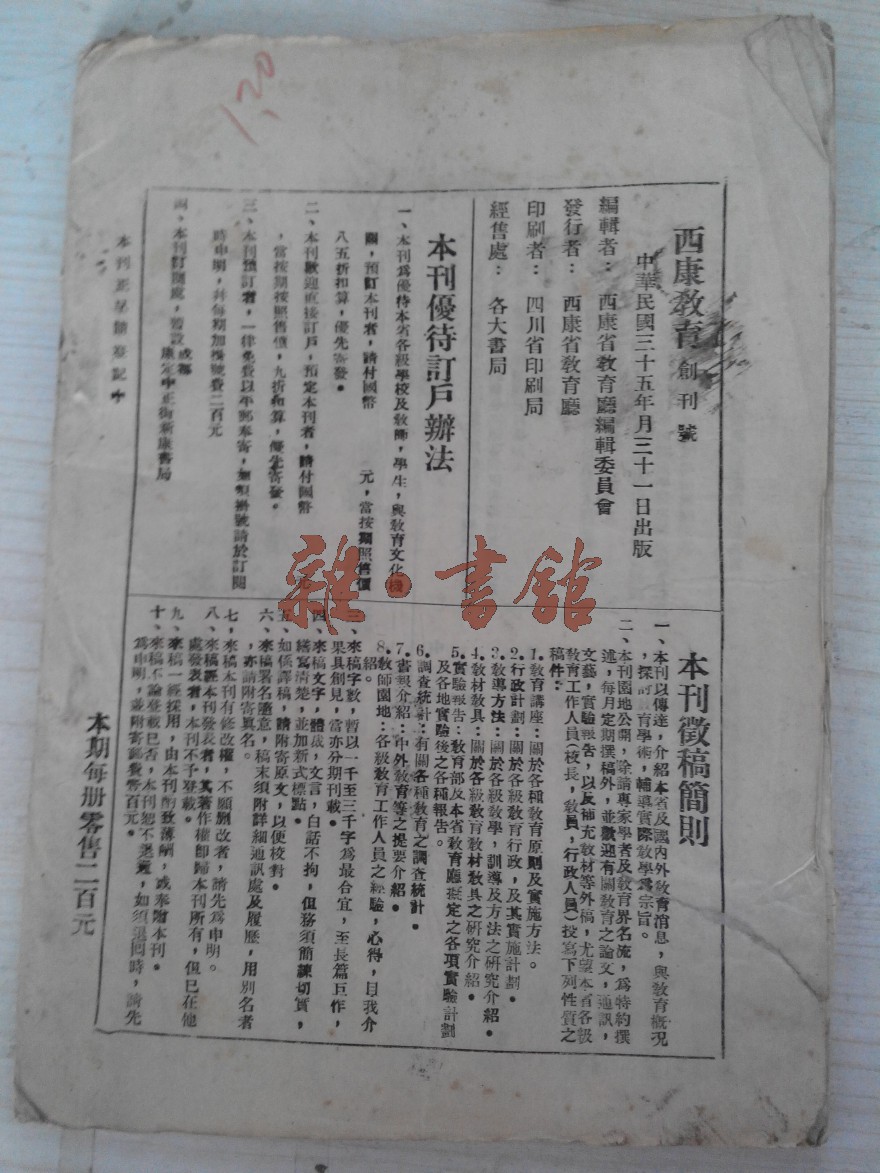 西康教育 創刊號
中華民國三十五年月三十一日出版
編輯者：西康省教育廳編輯委員會
發行者：西康省教育廳
印刷者：四川省印刷局
經售處：各大書局
本刊優待訂戶辦法
一、本刊爲優待本省各級學校及敎師，學生，與敎育文化機
關，預訂本刊者，請付國幣　　元，當按期照售價
八五折扣算，優先寄發。
二、本刊歡迎直接訂戶，預定本刊者，請付國幣　　元
，當按期按照售價，九折扣算，優先寄發。
三、本刊預訂者，一律免費以平郵奉寄，如須掛號請於訂閱
時申明，幷每期加掛號費二百元
四、本刊訂閱處，暫設
成都
康定中正街新康書局
本刊正呈請登記中
本刊徵稿簡則
一、本刊以傳達，介紹本省及國內外敎育消息，與敎育槪况
，探討敎育學術，輔導實際敎學爲宗旨。
二、本刊園地公開，除請專家學者及敎育界名流，爲特約撰
述，每月定期撰稿外，並歡迎有關敎育之論文，通訊，
文藝，實驗報告，以及補充敎材等外稿，尤望本省各級
敎育工作人員（校長，敎員，行政人員）投寫下列性質之
稿件：
1.敎育講座：關於各種敎育原則及實施方法。
2.行政計劃：關於各級敎育行政，及其實施計劃。
3.敎導方法：關於各級敎學，訓導及方法之硏究介紹。
4.敎材敎具：關於各級敎育敎材敎具之硏究介紹。
5.實驗報告：敎育部及本省敎育廳擬定之各項實驗計劃
及各地實驗後之各種報告。
6.調查統計：有關各種敎育之調查統計。
7.書報介紹：中外敎育等之提要介紹。
8.敎師園地：各級敎育工作人員之經驗，心得，自我介
紹。
三、來稿字數，暫以一千至三千字爲最合宜，至長篇巨作，
果具創見，當亦分期刊載。
四、來稿文字，體裁，文言，白話不拘，但務須簡練切實，
繕寫清楚，並加新式標點。
五、如係譯稿，請附寄原文，以便校對。
六、來稿署名隨意，稿末須附詳細通訊處及履歷，用別名者
，亦請附寄眞名。
七、來稿本刊有修改權，不願删改者，請先爲申明。
八、來稿經本刊發表者，其著作權卽歸本刊所有，但已在他
處發表者，本刊不予登載。
九、來稿一經採用，由本刊酌致薄酬，或奉贈本刊。
十、來稿不論登載已否，本刊恕不退還，如須退囘時，請先
爲申明，並附寄郵費壹百元。
本期每册零售二百元
1.20
雜·書館